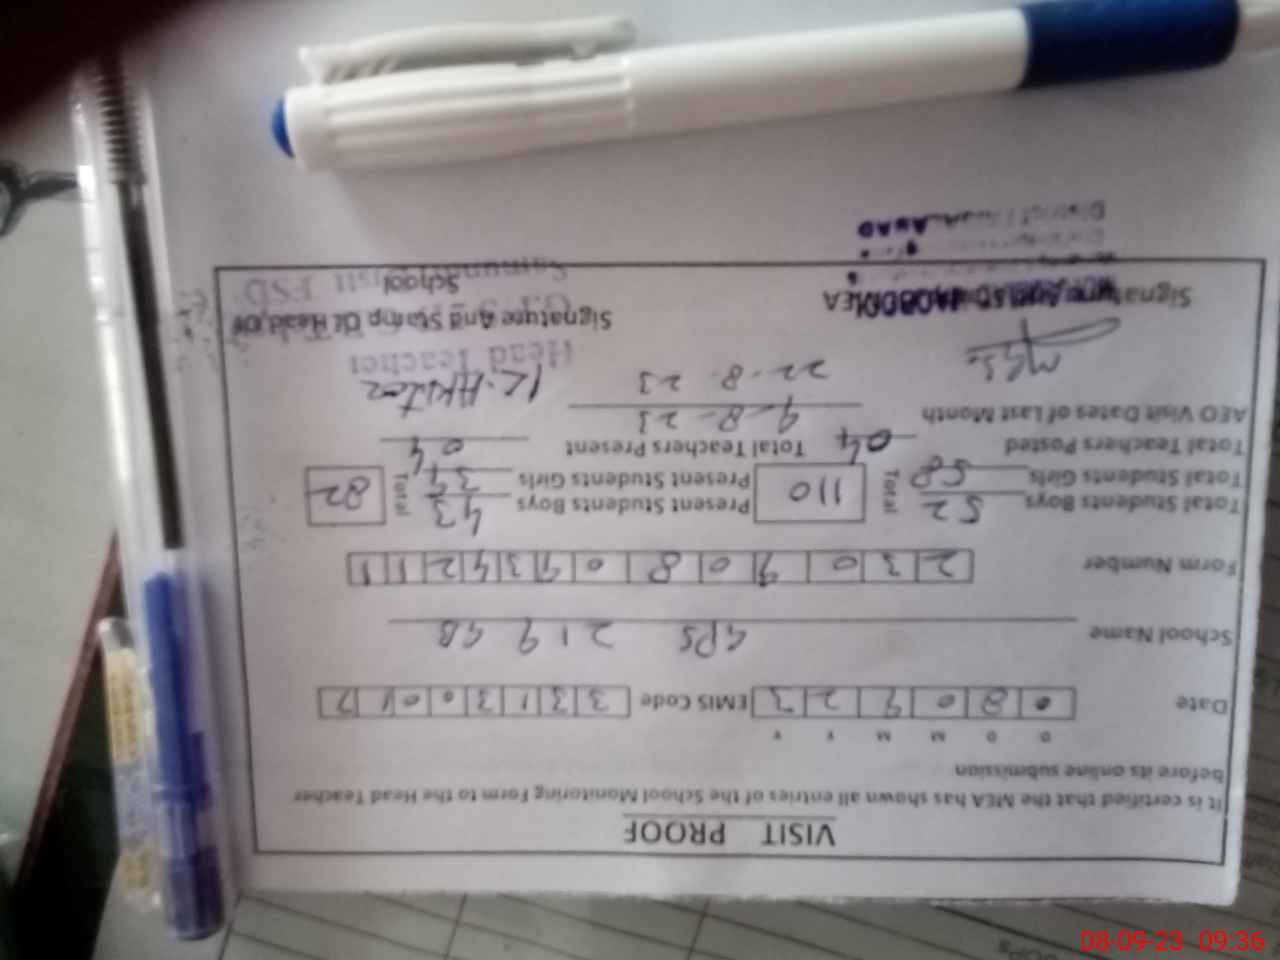 VISIT PROOF
It is certified that the MEA has shown all entries of the School Monitoring Form to the Head Teacher
before its online submission
D D M M Y Y
Date 0 8 0 9 2 3 EMIS Code 3 3 1 3 0 0
School Name GPS 219 GB
Form Number 2 3 0 9 0 8 0 9 3 4 2 1 1
Total Students Boys 52 Total 110 Present Students Boys 43 Total 82
Total Students Girls 58 Present Students Girls 39
Total Teachers Posted 04 Total Teachers Present 04
AEO Visit Dates of Last Month 9-8-23
22-8-23
Head Teacher
Signature And Stamp Of Head Of
School
FSD
08-09-23 09:36